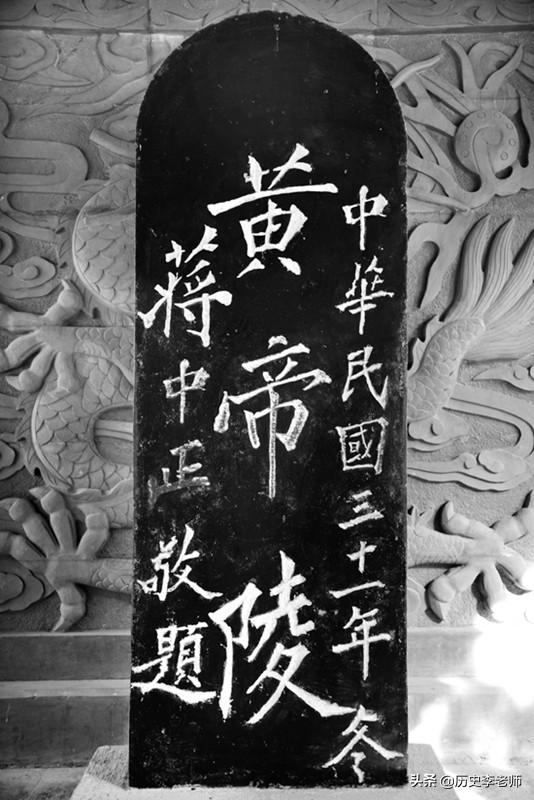 中華民國三十一年冬
黄帝陵
蔣中正敬題
头条 @历史李老师